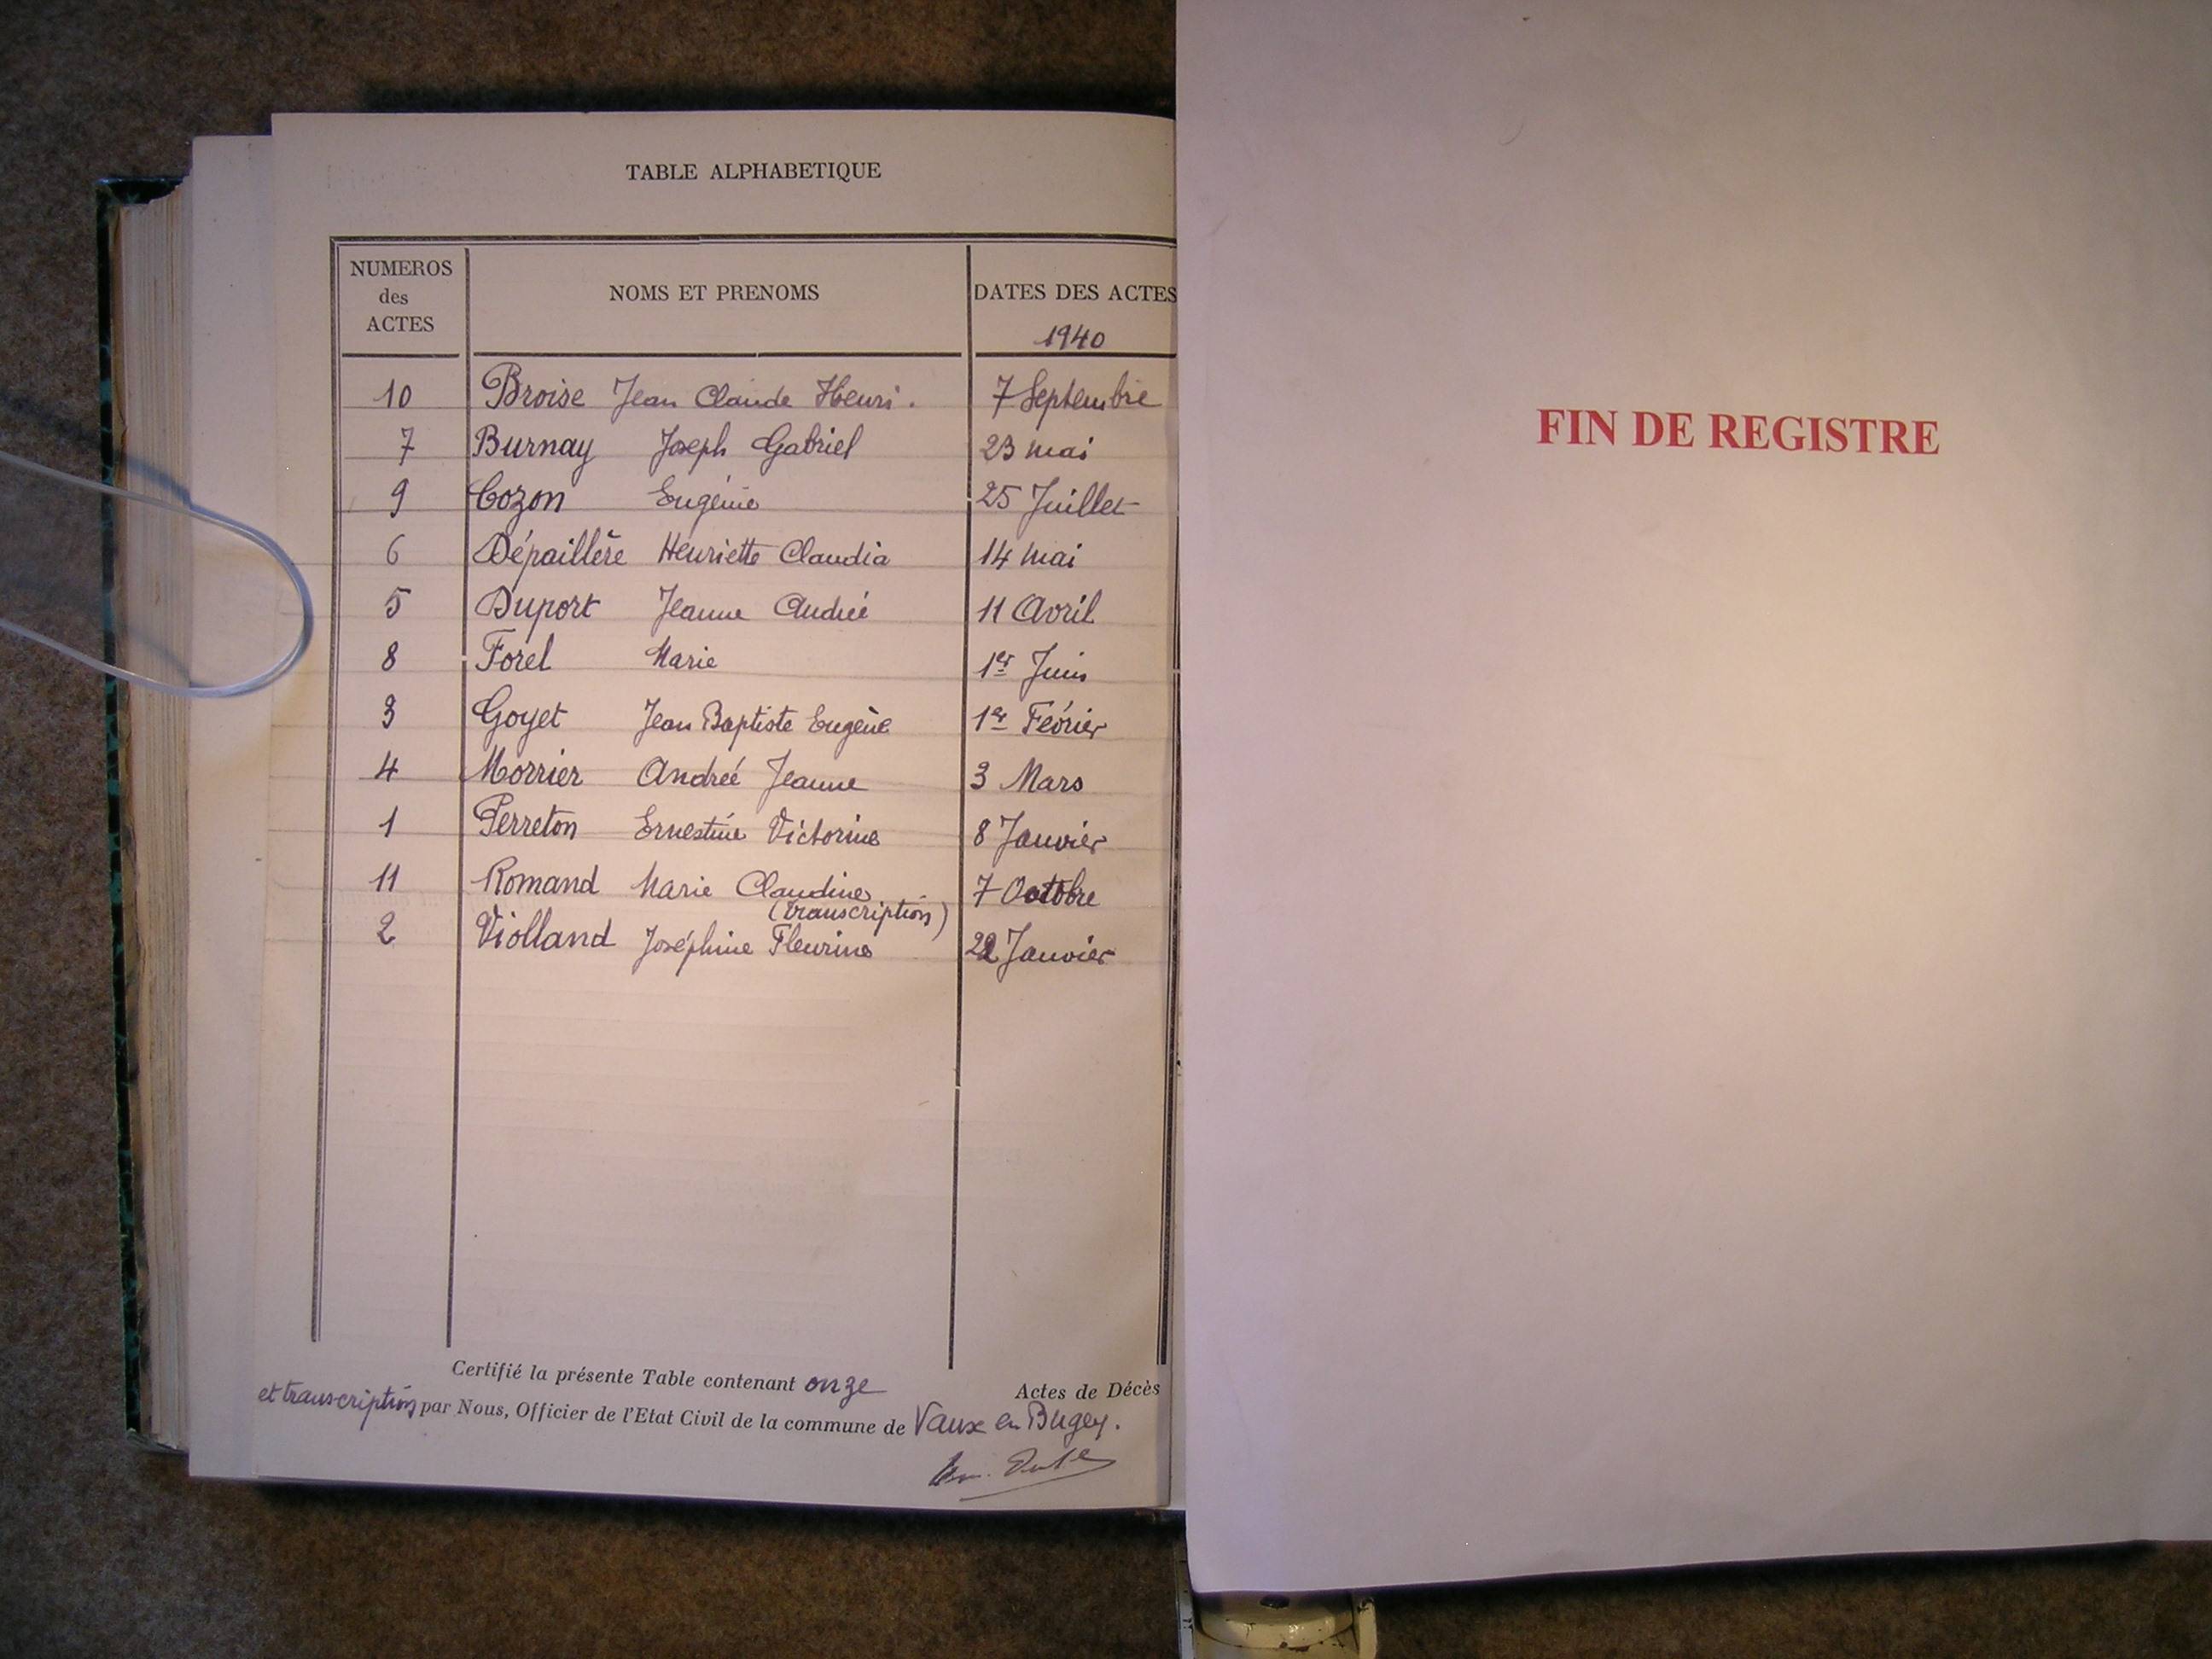 TABLE ALPHABETIQUE
NUMEROS des ACTES
NOMS ET PRENOMS
DATES DES ACTES
1940
10 Broise Jean Claude Henri. 7 Septembre
7 Burnay Joseph Gabriel 23 mai
9 Cozon Eugénie 25 Juillet
6 Dépaillère Henriette Claudia 14 mai
5 Duport Jeanne Andrée 11 Avril
8 Forel Marie 1er Juin
3 Goyet Jean Baptiste Eugène 1er Février
4 Morrier Andreé Jeanne 3 Mars
1 Perreton Ernestine Victorine 8 Janvier
11 Romand Marie Claudine 7 Octobre
(transcription)
2 Violland Joséphine Fleurine 22 Janvier
Certifié la présente Table contenant onze Actes de Décès
et transcription par Nous, Officier de l'Etat Civil de la commune de Vaux en Bugey.
FIN DE REGISTRE